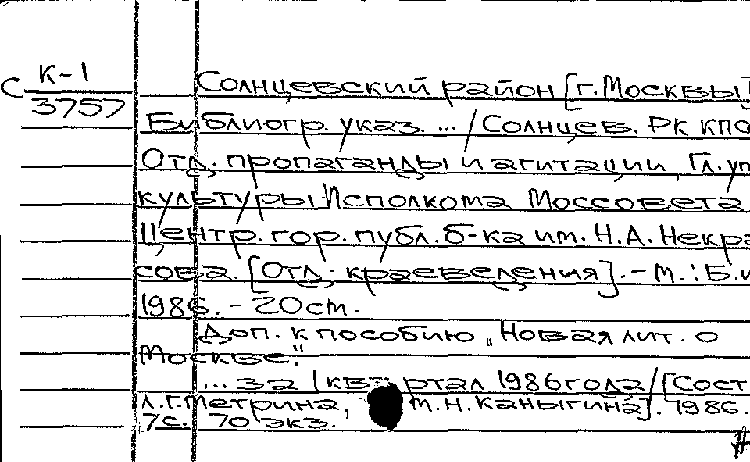 С К-1
3757
Солнцевский район [г. Москвы]
Библиогр. указ. ... / Солнцев. РК КПС
Отд. пропаганды и агитации, Гл. уп
культуры Исполкома Моссовета
Центр. гор. публ. б-ка им. Н.А. Некра
сова. [Отд. краеведения]. - М.: Б.и
1986. - 20 см.
Доп. к пособию "Новая лит. о
Москве".
... за I квартал 1986 года / [Сост
Л.Г. Петрина, М.Н. Каныгина]. 1986.
7с. 70 экз.